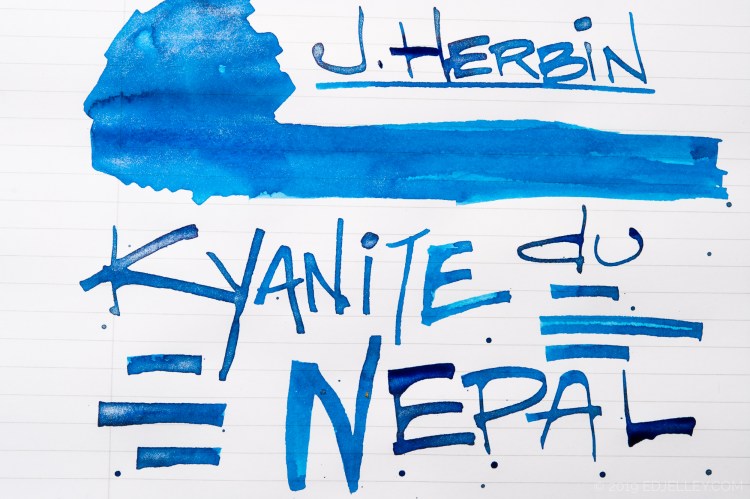 J. HERBIN
KYANITE du
NEPAL